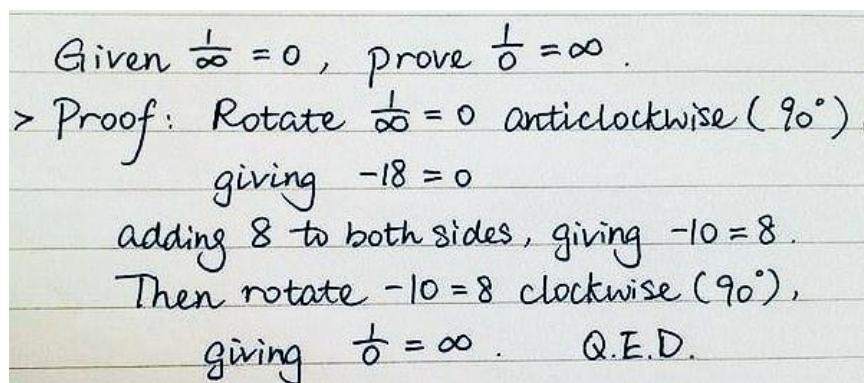 Given 1/∞ = 0, prove 1/0 = ∞.
> Proof: Rotate 1/∞ = 0 anticlockwise (90°)
giving -18 = 0
adding 8 to both sides, giving -10 = 8.
Then rotate -10 = 8 clockwise (90°),
giving 1/0 = ∞. Q.E.D.